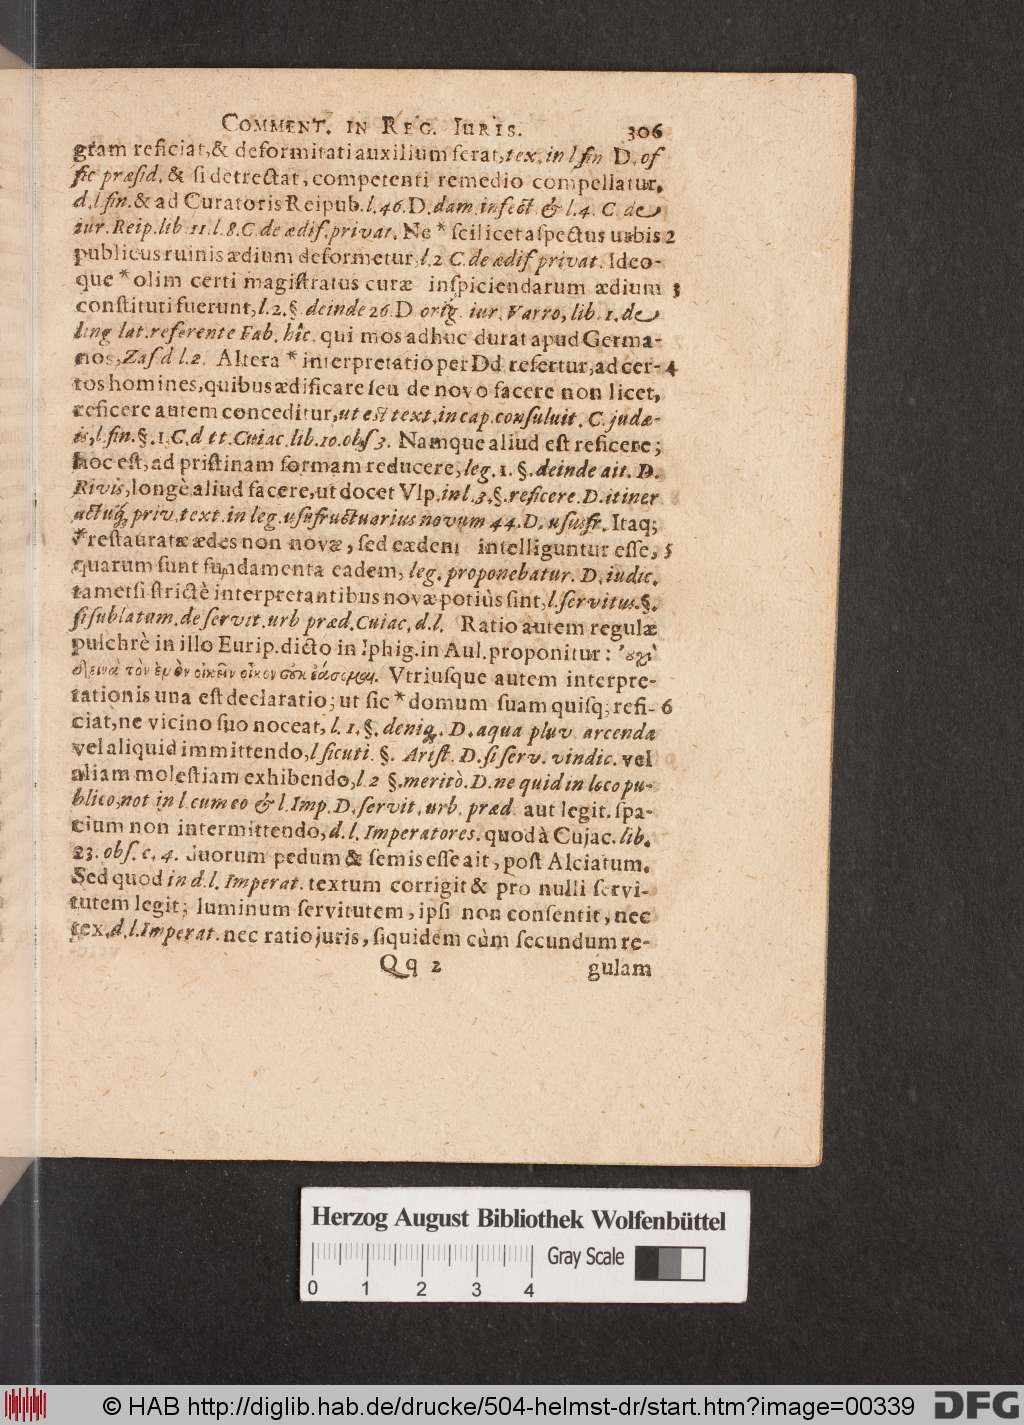 COMMENT. IN REG. IURIS. 306
gram reficiat, & deformitati auxilium ferat, tex. in l fin D. of
fic præsid. & si detrectat, competenti remedio compellatur.
d. l fin. & ad Curatoris Reipub. l. 46. D. dam. infect. & l. 4. C. de
iur. Reip. lib. 11. l. 8. C. de ædif. privat. Ne * scilicet aspectus urbis 2
publicus ruinis ædium deformetur, l. 2 C. de ædif privat. Ideo-
que * olim certi magistratus curæ inspiciendarum ædium 3
constituti fuerunt, l. 2. §. deinde 26 D orig. iur. Varro, lib. 1. de
ling lat. referente Fab. hîc. qui mos adhuc durat apud Germa-
nos, Zas d l. 2. Altera * interpretatio per Dd refertur, ad cer- 4
tos homines, quibus ædificare seu de novo facere non licet,
reficere autem conceditur, ut est text. in cap. consuluit. C. judæ-
is, l. fin. §. 1. C. d tt. Cuiac. lib. 10. obs 3. Namque aliud est reficere;
hoc est, ad pristinam formam reducere, leg. 1. §. deinde ait. D.
Rivis, longè aliud facere, ut docet Vlp. in l. 3. §. reficere. D. itiner
actuq; priv. text. in leg. usufructuarius novum 44. D. usufr. Itaq;
* restauratæ ædes non novæ, sed eædem intelliguntur esse, 5
quarum sunt fundamenta eadem, leg. proponebatur. D. iudic.
tametsi strictè interpretantibus novæ potiùs sint, l. servitus. §.
si sublatum. de servit. urb præd. Cuiac. d. l. Ratio autem regulæ
pulchrè in illo Eurip. dicto in Iphig. in Aul. proponitur:
τὸν ἐμὸν οἰκεῖν οἶκον οὐκ ἐάσομαι. Vtriusque autem interpre-
tationis una est declaratio; ut sic * domum suam quisq; refi- 6
ciat, ne vicino suo noceat, l. 1. §. deniq;. D. aqua pluv arcenda
vel aliquid immittendo, l sicuti. §. Arist. D. si serv. vindic. vel
aliam molestiam exhibendo, l. 2 §. meritò. D. ne quid in loco pu-
blico, not in l. cum eo & l. Imp. D. servit. urb. præd. aut legit. spa-
cium non intermittendo, d. l. Imperatores. quod à Cujac. lib.
23. obs. c. 4. duorum pedum & semis esse ait, post Alciatum.
Sed quod in d. l. Imperat. textum corrigit & pro nulli servi-
tutem legit; luminum servitutem, ipsi non consentit, nec
tex. d. l. Imperat. nec ratio juris, siquidem cùm secundum re-
Qq 2 gulam
Herzog August Bibliothek Wolfenbüttel
Gray Scale
0 1 2 3 4
© HAB http://diglib.hab.de/drucke/504-helmst-dr/start.htm?image=00339 DFG